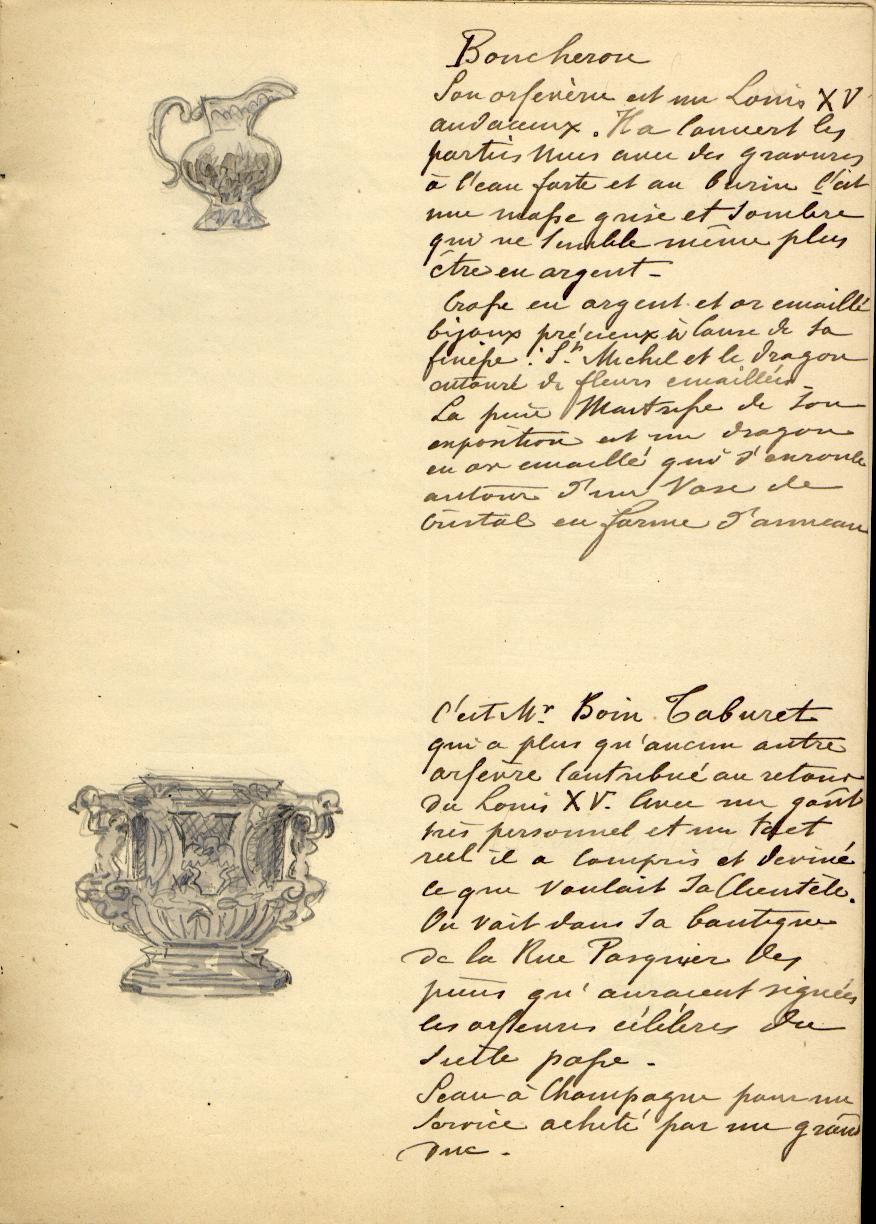 Boucheron
Son orfévèrie est un Louis XV
audacieux. Il a couvert les
parties nues avec des gravures
à l'eau forte et au burin c'est
une masse grise et sombre
qui ne semble même plus
être en argent -
Crosse en argent et or emaillé
bijoux précieux à cause de sa
finesse : St. Michel et le dragon
entouré de fleurs emaillées -
La pièce Maitresse de son
exposition est un dragon
en or emaillé qui s'enroule
autour d'un Vase de
Cristal en forme d'anneau
C'est Mr Boin Taburet
qui a plus qu'aucun autre
orfèvre contribué au retour
du Louis XV. Avec un goût
très personnel et un tact
reel il a compris et deviné
ce que voulait sa Clientèle.
On voit dans sa boutique
de la Rue Pasquier des
pièces qu'auraient signées
les orfevres célèbres du
siècle passé -
Seau à Champagne pour un
service acheté par un grand
duc -